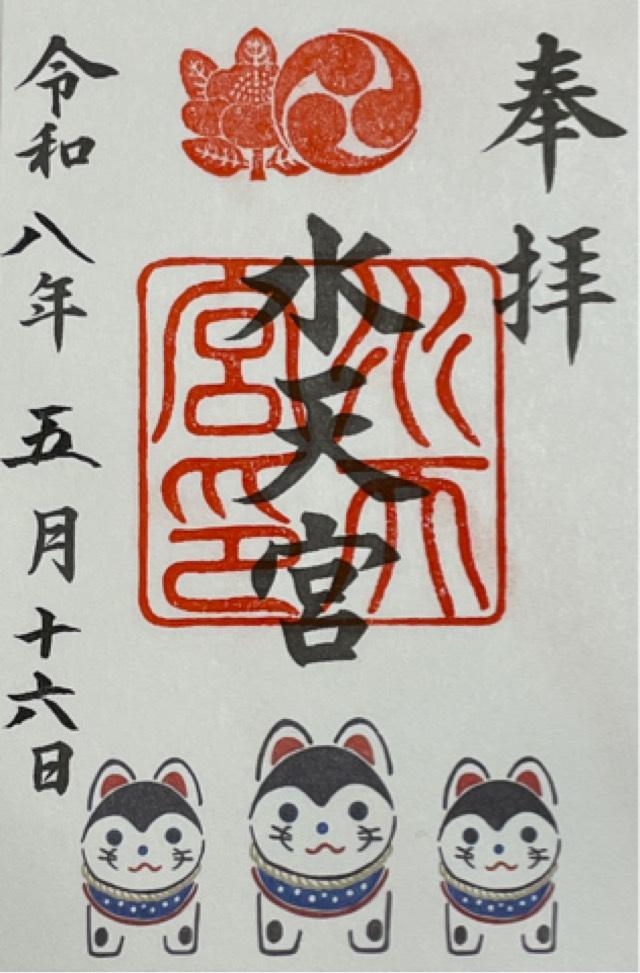 奉拝
水天宮
水天宮印
令和八年五月十六日